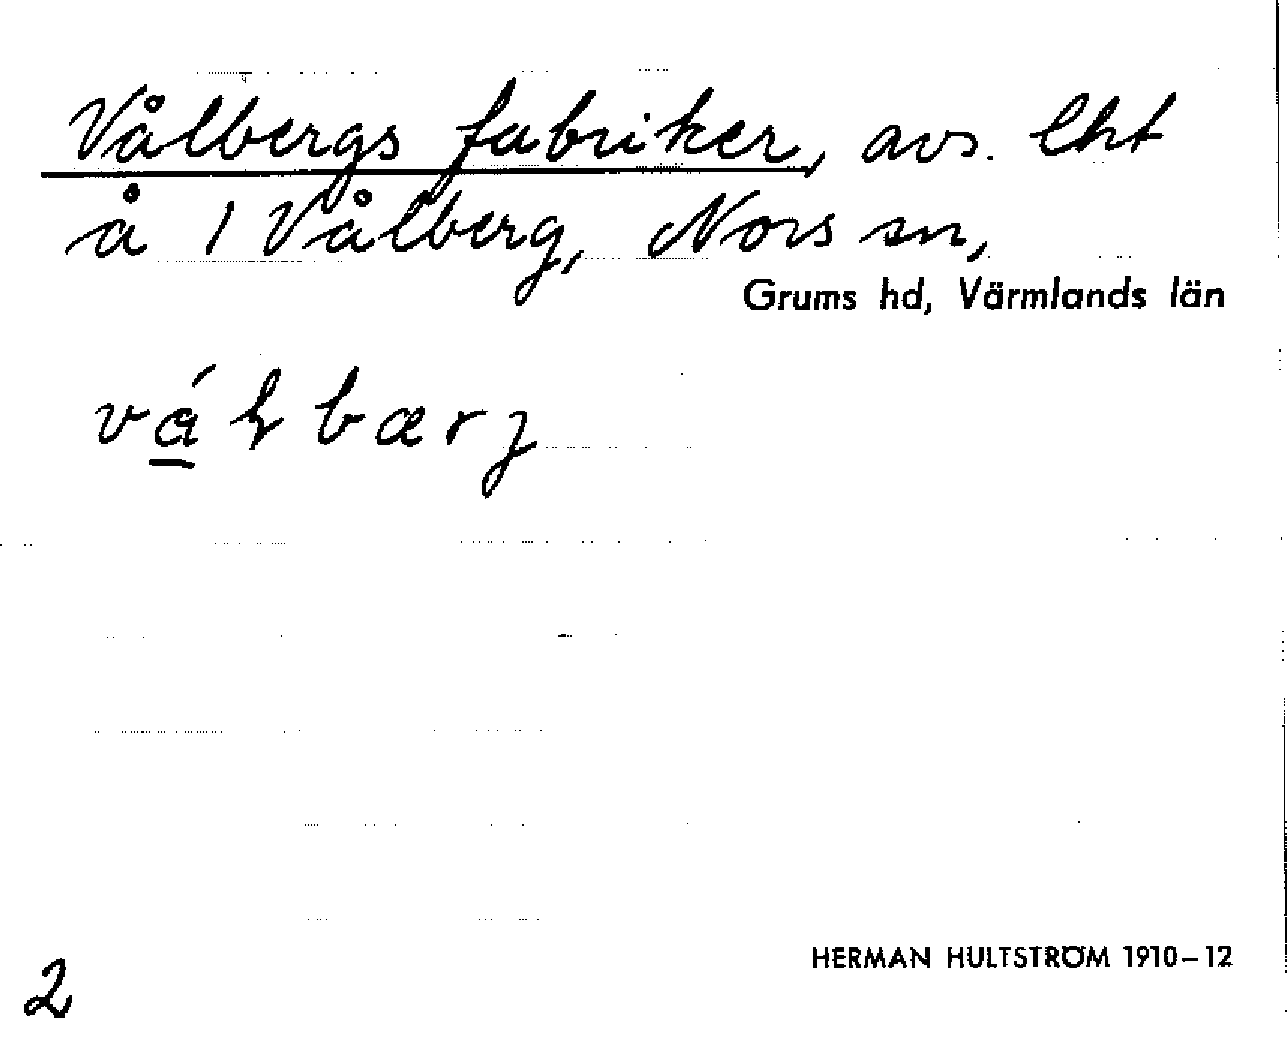 Vålbergs fabriker, avs. lht
å 1 Vålberg, Nors sn,
Grums hd, Värmlands län
2
HERMAN HULTSTRÖM 1910–12